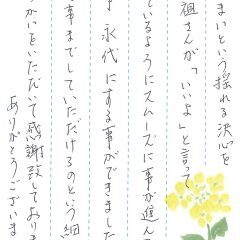 まいという揺れる決心を
祖さんが、「いいよ」と言って
ているようにスムーズに事が進んで
永代にする事ができました
事までしていただけるのという細
かいをいただいて感謝致しておりま
ありがとうございま